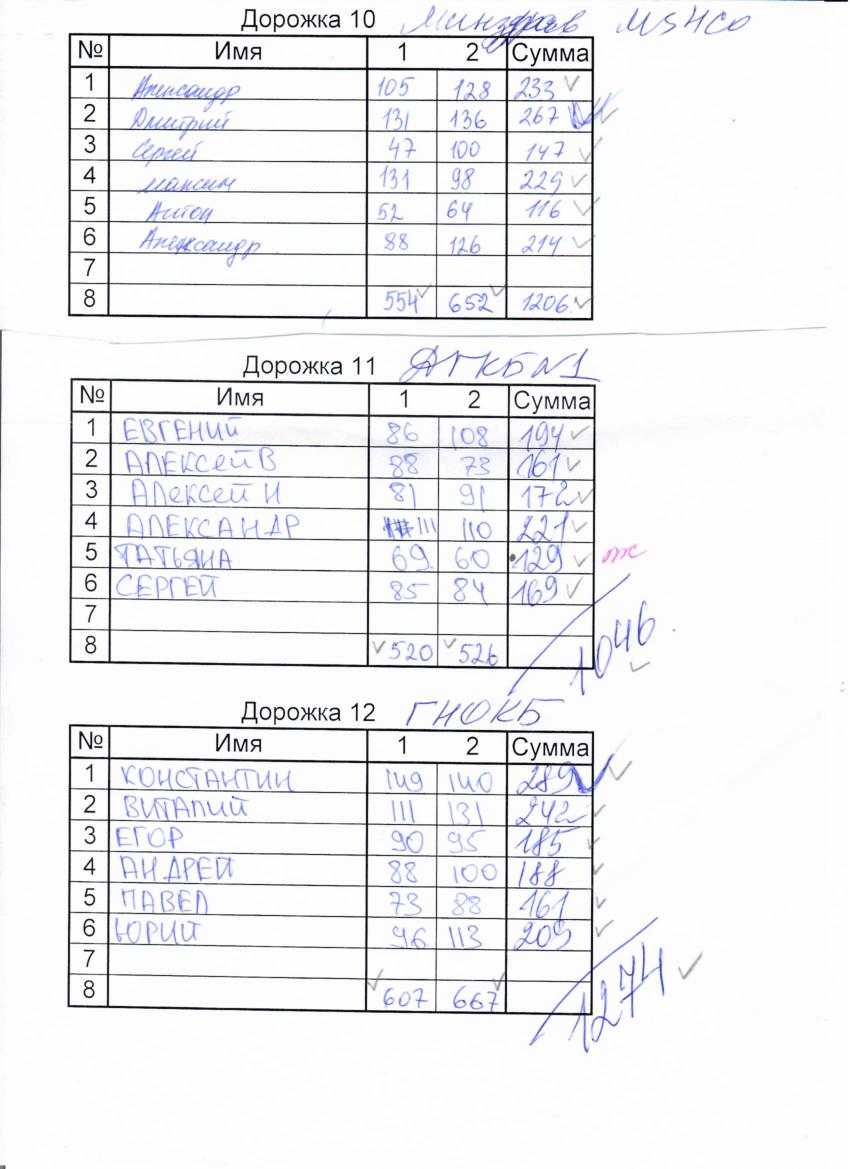 Дорожка 10 Минздрав МЗНСО
№ Имя 1 2 Сумма
1 Александр 105 128 233
2 Дмитрий 131 136 267
3 Сергей 47 100 147
4 Максим 131 98 229
5 Антон 52 64 116
6 Александр 88 126 214
7
8 554 652 1206
Дорожка 11 ГКБ№1
№ Имя 1 2 Сумма
1 ЕВГЕНИЙ 86 108 194
2 АЛЕКСЕЙ В 88 73 161
3 АЛЕКСЕЙ Н 81 91 172
4 АЛЕКСАНДР 111 110 221
5 ТАТЬЯНА 69 60 129 ж
6 СЕРГЕЙ 85 84 169
7
8 520 526 1046
Дорожка 12 ГНОКБ
№ Имя 1 2 Сумма
1 КОНСТАНТИН 149 140 289
2 ВИТАЛИЙ 111 131 242
3 ЕГОР 90 95 185
4 АНДРЕЙ 88 100 188
5 ПАВЕЛ 73 88 161
6 ЮРИЙ 96 113 209
7
8 607 667 1274